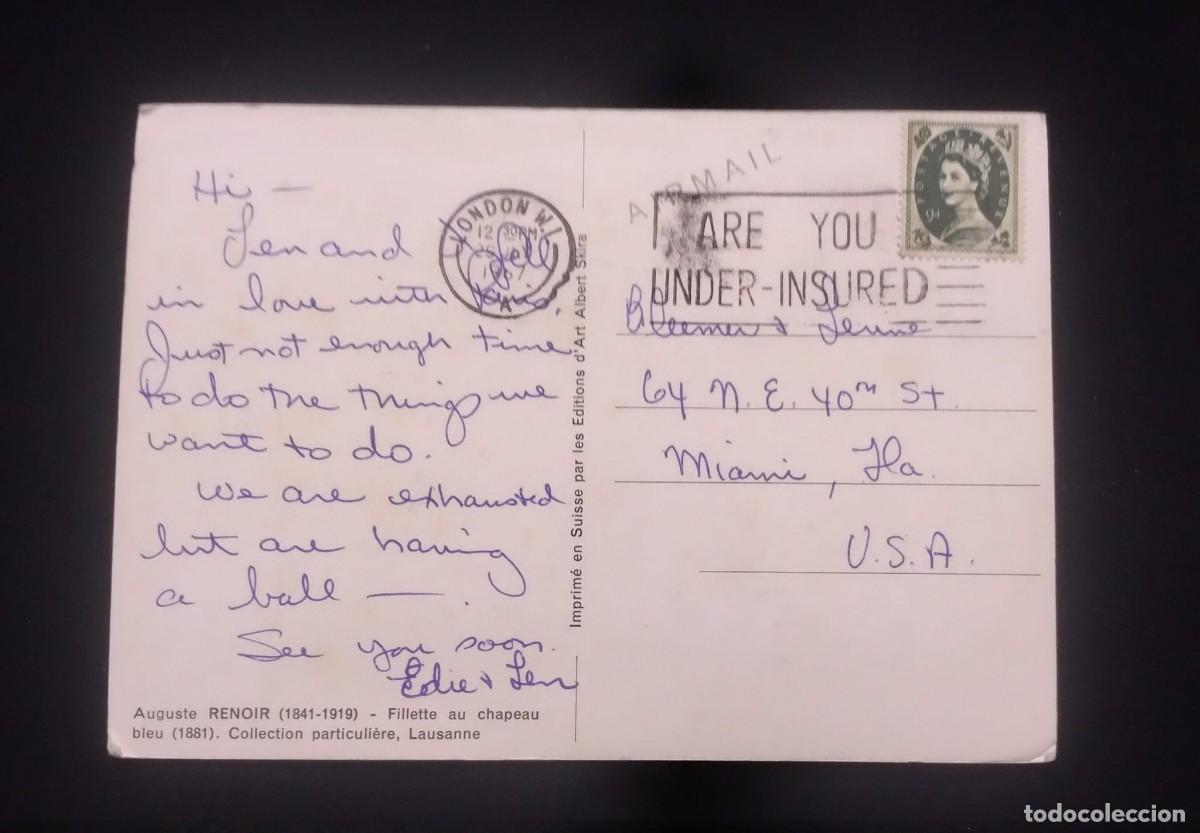 Hi —
Len and I fell
in love with Paris.
Just not enough time
to do the things we
want to do.
We are exhausted
but are having
a ball — .
See you soon.
Edie & Len
Auguste RENOIR (1841-1919) - Fillette au chapeau
bleu (1881). Collection particulière, Lausanne
Imprimé en Suisse par les Editions d'Art Albert Skira
LONDON W.1
12 30PM
1967
A
AIRMAIL
ARE YOU
UNDER-INSURED
POSTAGE REVENUE
9d
&
64 N.E. 40TH St.
Miami, Fla.
U.S.A.
todocoleccion